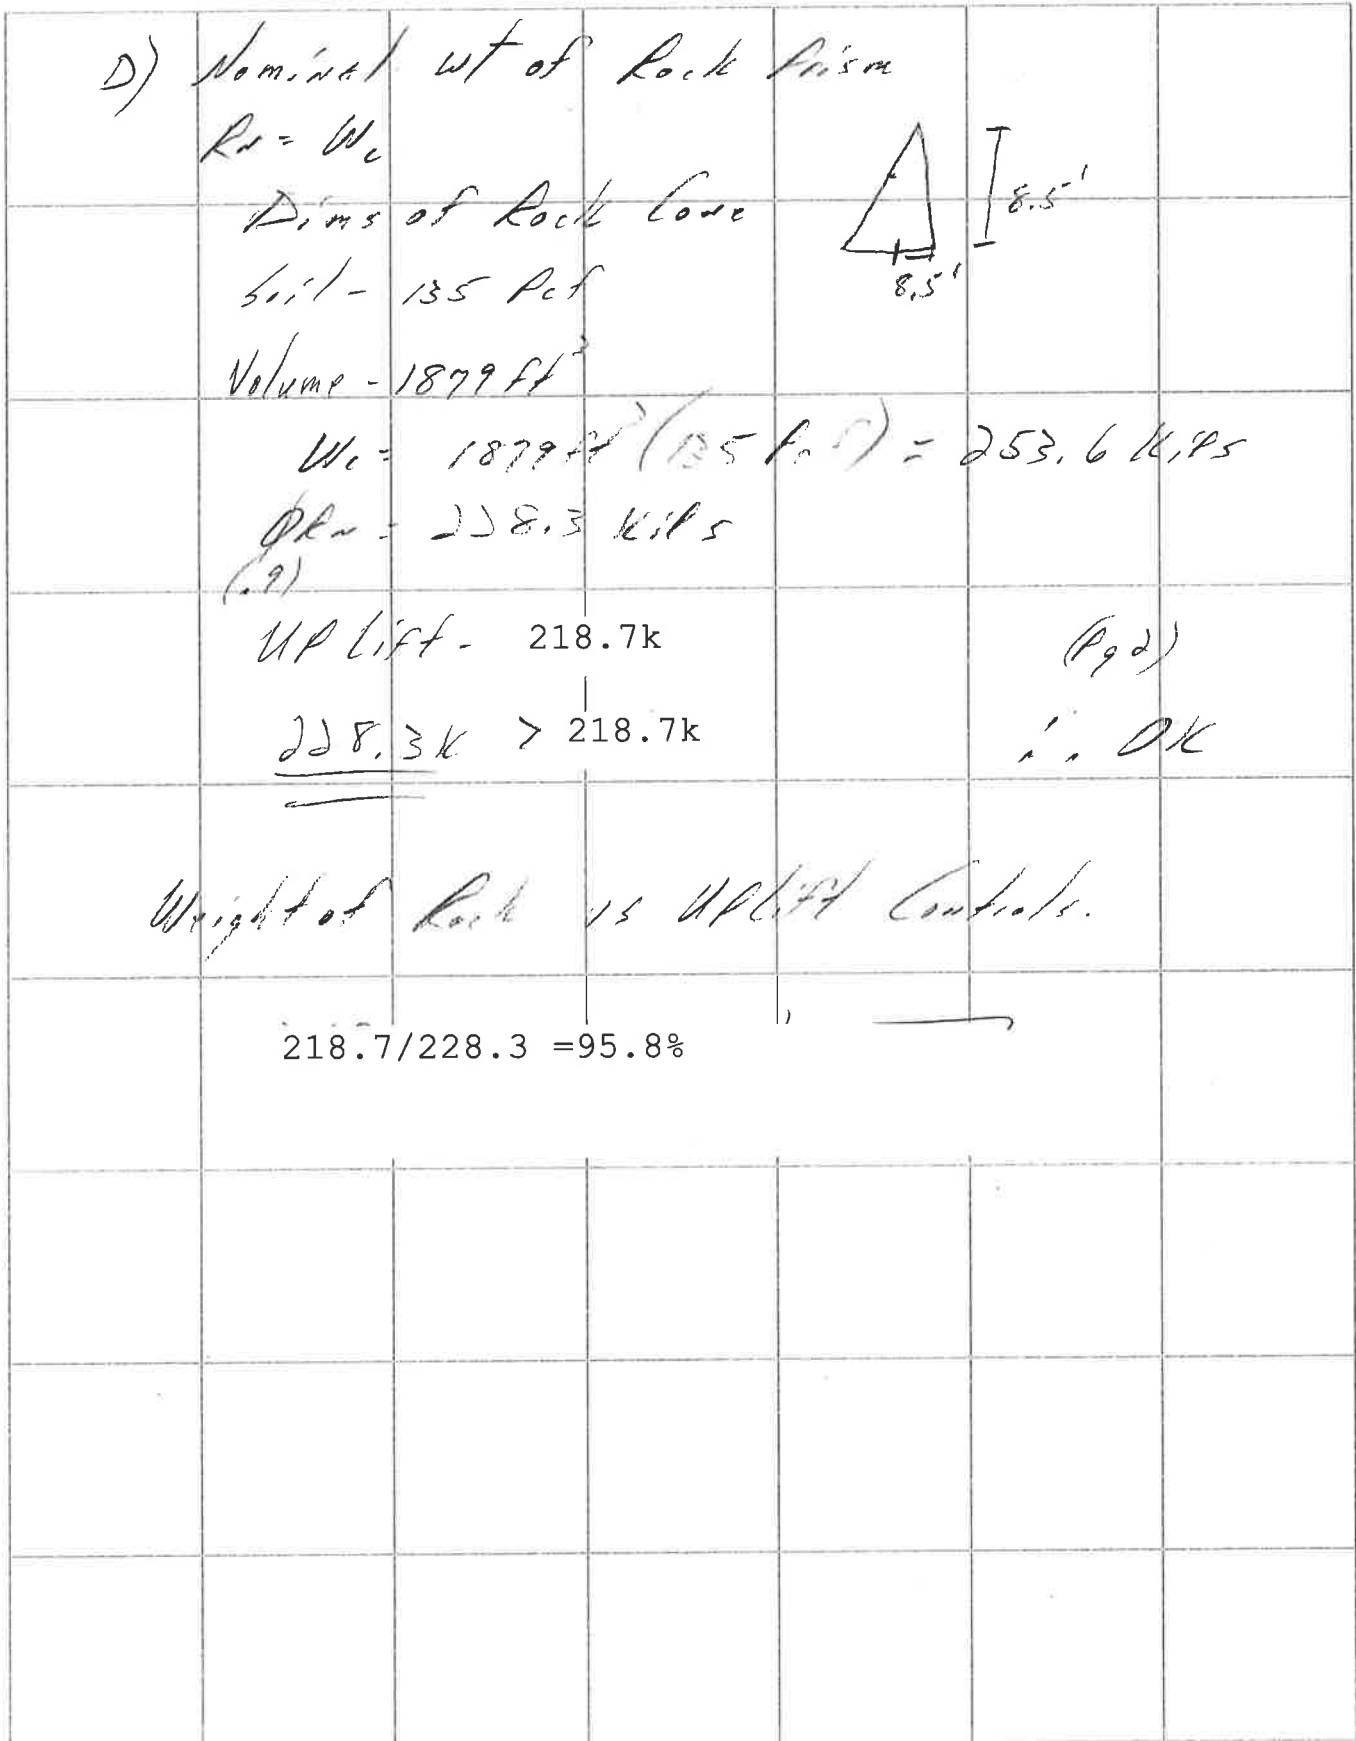 D) Nominal wt of Rock Prism
Rn = Wc
Dims of Rock Cone
8.5'
8.5'
Soil - 135 Pcf
Volume - 1879 ft³
Wc = 1879 ft³ (135 Pcf) = 253.6 Kips
ΦRn = 228.3 Kips
(.9)
UPlift - 218.7k (Pg 2)
228.3K > 218.7k ∴ OK
Weight of Rock vs UPlift Controls.
218.7/228.3 =95.8%